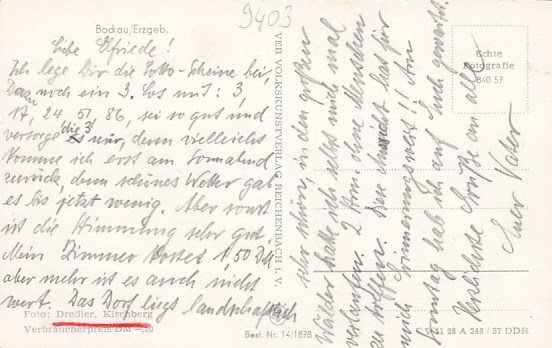 Bockau/Erzgeb.
9403
Liebe Elfriede!
Ich lege Dir die Lotto-Scheine bei,
Dazu noch ein 3. Los mit: 3,
17, 24, 51, 86, sei so gut und
versorge die 3 nur, denn vielleicht
komme ich erst am Sonnabend
zurück, denn schönes Wetter gab
es bis jetzt wenig. Aber sonst
ist die Stimmung sehr gut
Mein Zimmer kostet 1,50 DM
aber mehr ist es auch nicht
wert. Das Dorf liegt landschaftlich
sehr schön, in den großen
Wälder hatte ich selbst mich mal
verlaufen. 2 Stdn. ohne Menschen
zu treffen. Diese Ansicht hat für
mich Erinnerungswert!! Am
Sonntag hab ich auf Euch gewartet.
Herzlichste Grüße an alle
Euer Vater
Foto: Dreßler, Kirchberg
Verbraucherpreis DM -,20
VEB VOLKSKUNSTVERLAG REICHENBACH I. V.
Best. Nr. 14/1878
Echte
Fotografie
840 57
11 28 A 246 / 57 DDR